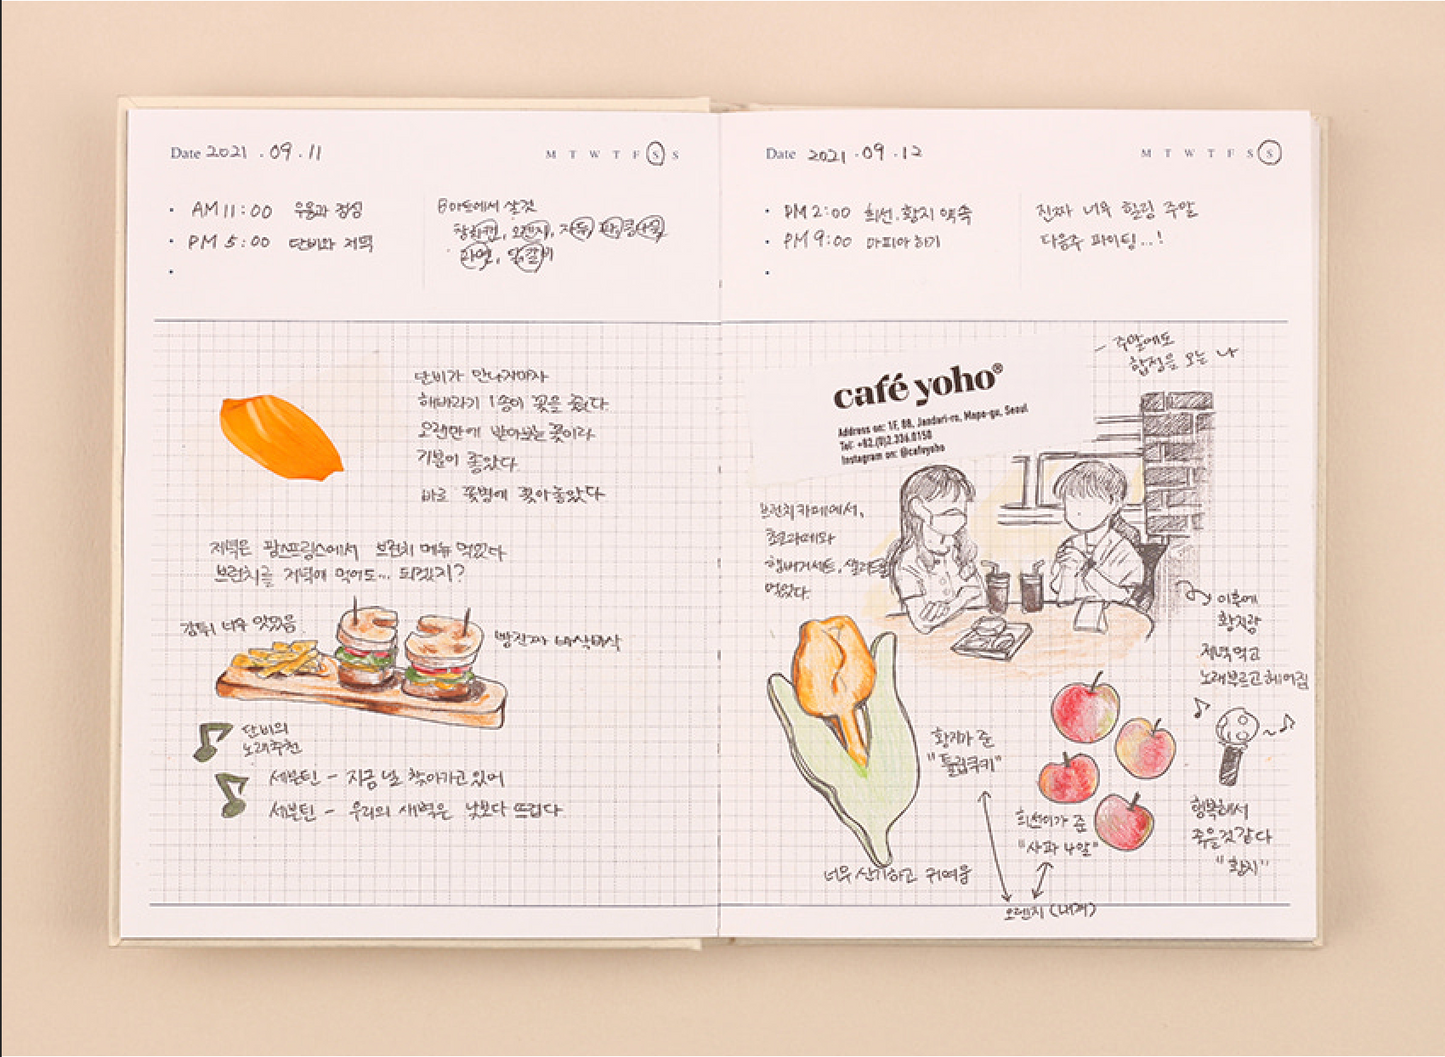 Date 2021.09.11
M T W T F S S
· AM 11:00 우움과 점심
· PM 5:00 단비와 저녁
·
마트에서 살것
참치캔, 오렌지, 자두, 콩나물,
라면, 닭갈비
단비가 만나자마자
해바라기 1송이 꽃을 줬다.
오랜만에 받아보는 꽃이라
기분이 좋았다.
바로 꽃병에 꽂아놓았다
저녁은 팜스프링스에서 브런치 메뉴 먹었다
브런치를 저녁에 먹어도... 되겠지?
감튀 너무 맛있음
빵 진짜 바삭바삭
단비의
노래추천
세븐틴 - 지금 널 찾아가고 있어
세븐틴 - 우리의 새벽은 낮보다 뜨겁다
Date 2021.09.12
M T W T F S S
· PM 2:00 희선, 황지 약속
· PM 9:00 마피아 하기
·
진짜 너무 힐링 주말
다음주 파이팅...!
café yoho®
Address on: 1F, 88, Jandari-ro, Mapo-gu, Seoul
Tel: +82.(0)2.336.0150
Instagram on: @cafeyoho
- 주말에도
합정을 오는 나
브런치카페에서,
초코라떼와
햄버거세트, 샐러드를
먹었다.
이후에
황지랑
저녁먹고
노래부르고 헤어짐
황지가 준
"튤립쿠키"
희선이가 준
"사과 4알"
행복해서
죽을것같다
"황지"
너무 신기하고 귀여움
오렌지 (내꺼)